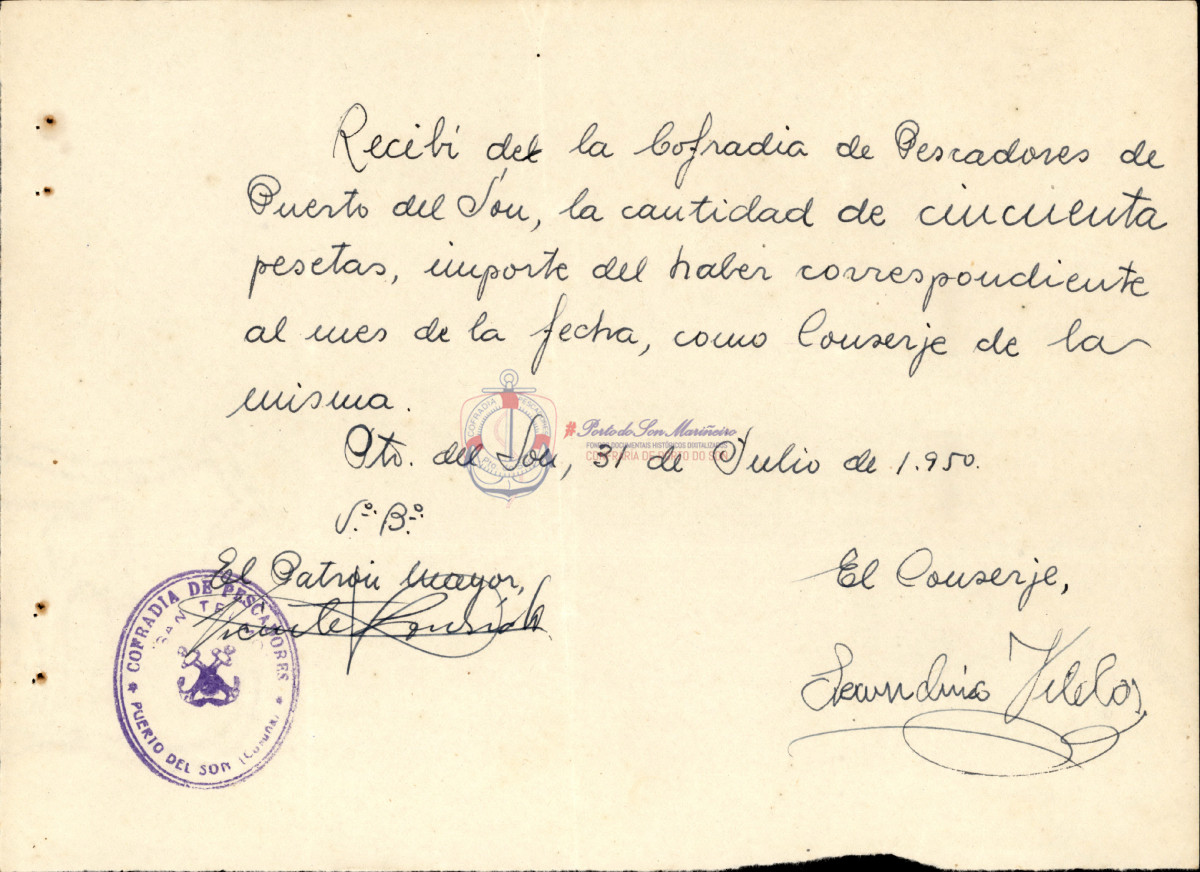 Recibí de la Cofradia de Pescadores de
Puerto del Són, la cantidad de cincuenta
pesetas, importe del haber correspondiente
al mes de la fecha, como Conserje de la
misma.
Pto. del Son, 31 de Julio de 1.950.
#PortodoSonMariñeiro
FONDOS DOCUMENTAIS HISTÓRICOS DIXITALIZADOS
CONFRARÍA DE PORTO DO SON
COFRADIA PESCADORES
V.º B.º
El Patrón mayor,
El Conserje,
Vicente
COFRADIA DE PESCADORES
SAN TELMO
PUERTO DEL SON (CORUÑA)